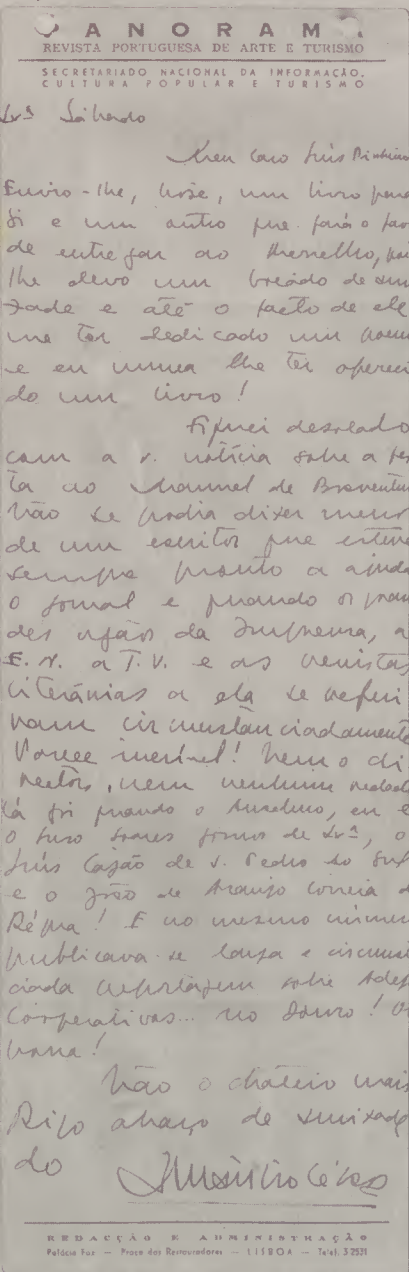 PANORAMA
REVISTA PORTUGUESA DE ARTE E TURISMO
SECRETARIADO NACIONAL DA INFORMAÇÃO,
CULTURA POPULAR E TURISMO
Lxª Sábado
Meu caro Luís
Envio-lhe, hoje, um livro para
si e um outro que fará o fav
de entregar ao
lhe devo um de ami
zade e até o facto de ele
me ter dedicado um poem
e eu nunca lhe ter ofereci
do um livro!
Fiquei desolado
com a v. notícia sobre a fes
ta ao Manuel de Boaventur
Não se podia dizer menos
de um escritor que esteve
sempre pronto a ajuda
o jornal e quando os gran
des orgãos da Imprensa, a
E.N. a T.V. e as revistas
literárias a ela se referi
ram circunstanciadamente
Parece incrível! Nem o di
rector, nem nenhum redact
lá foi quando o Anselmo, eu e
o Tuso Soares fomos de Lxª, o
Luís Cajão de S. Pedro do Sul
e o João de Araujo Correia d
Régua! E no mesmo número
publicava-se larga e circunst
ciada reportagem sobre Adeg
Corporativas... no Douro! O
Não o chateio mais
Rijo abraço de amizade
do
REDACÇÃO E ADMINISTRAÇÃO
Palácio Foz — Praça dos Restauradores — LISBOA — Telef. 32531